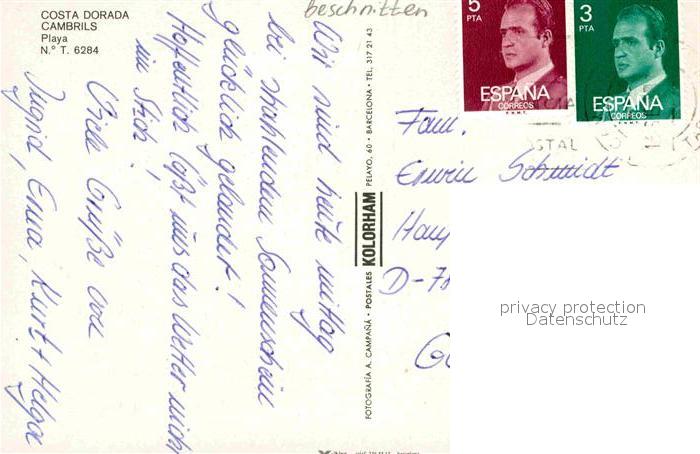 beschnitten
COSTA DORADA
CAMBRILS
Playa
N.º T. 6284
Wir sind heute mittag
bei strahlendem Sonnenschein
glücklich gelandet!
Hoffentlich läßt uns das Wetter nicht
im Stich!
Viele Grüße von
Ingrid, Erna, Kurt + Helga
FOTOGRAFÍA A. CAMPAÑÁ · POSTALES KOLORHAM PELAYO, 60 · BARCELONA · TEL. 317 21 43
5
PTA
ESPAÑA
CORREOS
F.N.M.T.
3
PTA
ESPAÑA
CORREOS
F.N.M.T.
STAL
Fam.
Erwin Schmidt
Hau
D-7
G
privacy protection
Datenschutz